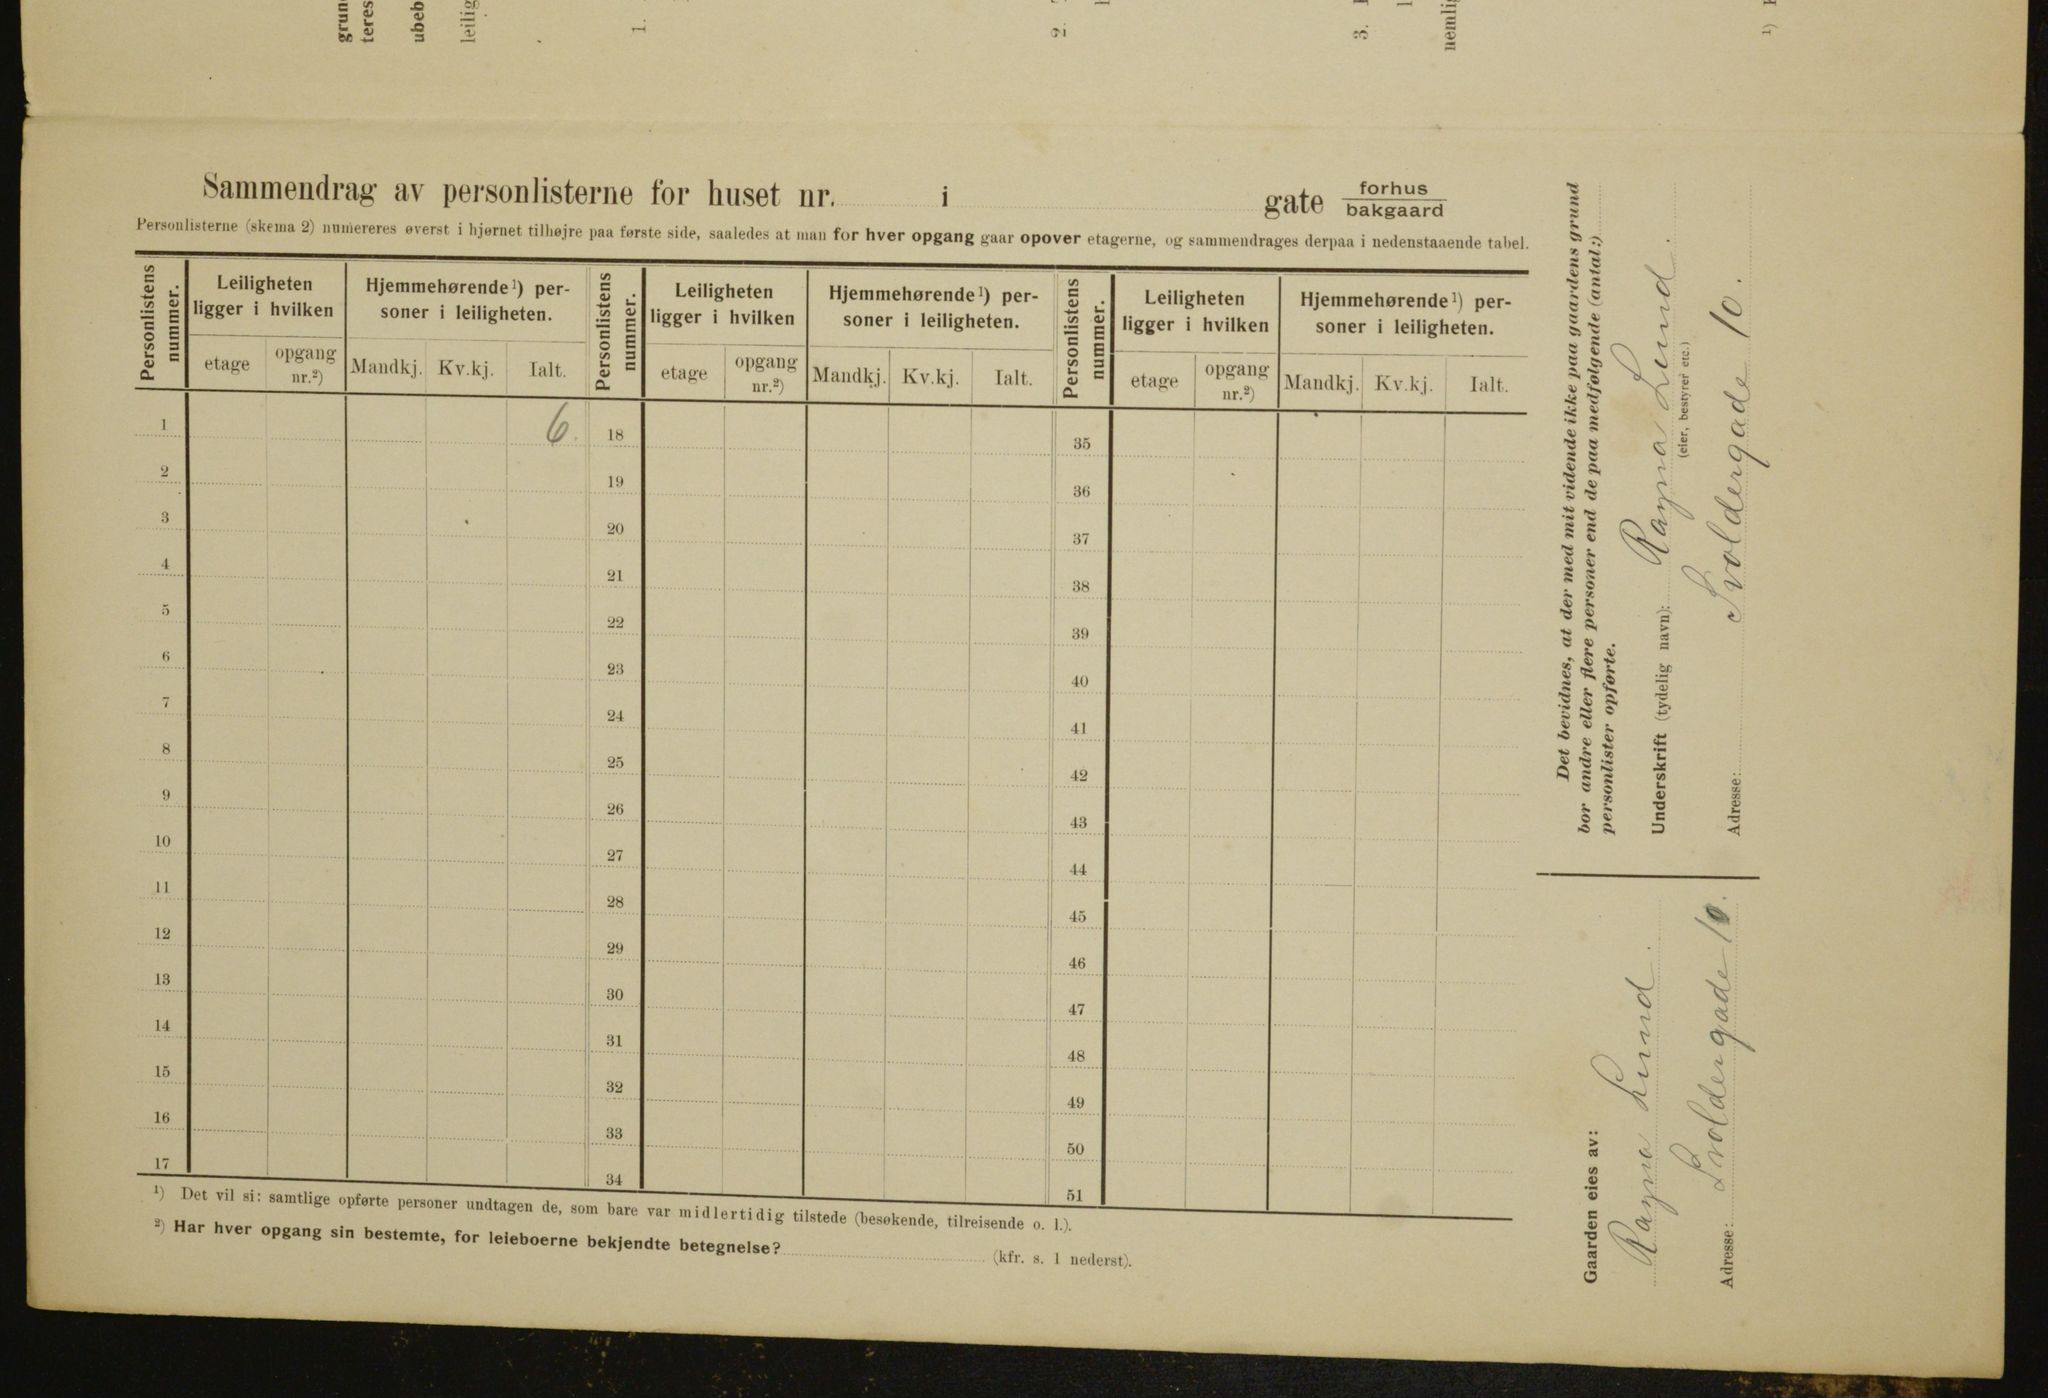 grun
teres
ubeb
leilig
1.
2.
3.
nemlig
1)
Sammendrag av personlisterne for huset nr. i gate forhus
bakgaard
Personlisterne (skema 2) numereres øverst i hjørnet tilhøjre paa første side, saaledes at man for hver opgang gaar opover etagerne, og sammendrages derpaa i nedenstaaende tabel.
Personlistens nummer.
Leiligheten ligger i hvilken
Hjemmehørende 1) personer i leiligheten.
Personlistens nummer.
Leiligheten ligger i hvilken
Hjemmehørende 1) personer i leiligheten.
Personlistens nummer.
Leiligheten ligger i hvilken
Hjemmehørende 1) personer i leiligheten.
etage opgang nr.2) Mandkj. Kv.kj. Ialt. etage opgang nr.2) Mandkj. Kv.kj. Ialt. etage opgang nr.2) Mandkj. Kv.kj. Ialt.
1 6. 18 35
2 19 36
3 20 37
4 21 38
5 22 39
6 23 40
7 24 41
8 25 42
9 26 43
10 27 44
11 28 45
12 29 46
13 30 47
14 31 48
15 32 49
16 33 50
17 34 51
1) Det vil si: samtlige opførte personer undtagen de, som bare var midlertidig tilstede (besøkende, tilreisende o. l.).
2) Har hver opgang sin bestemte, for leieboerne bekjendte betegnelse? (kfr. s. 1 nederst).
Det bevidnes, at der med mit vidende ikke paa gaardens grund
bor andre eller flere personer end de paa medfølgende (antal:)
personlister opførte.
Underskrift (tydelig navn): Ragna Lund.
(eier, bestyrer etc.)
Adresse: Svoldergade 10.
Gaarden eies av:
Ragna Lund.
Adresse: Svoldergade 10.